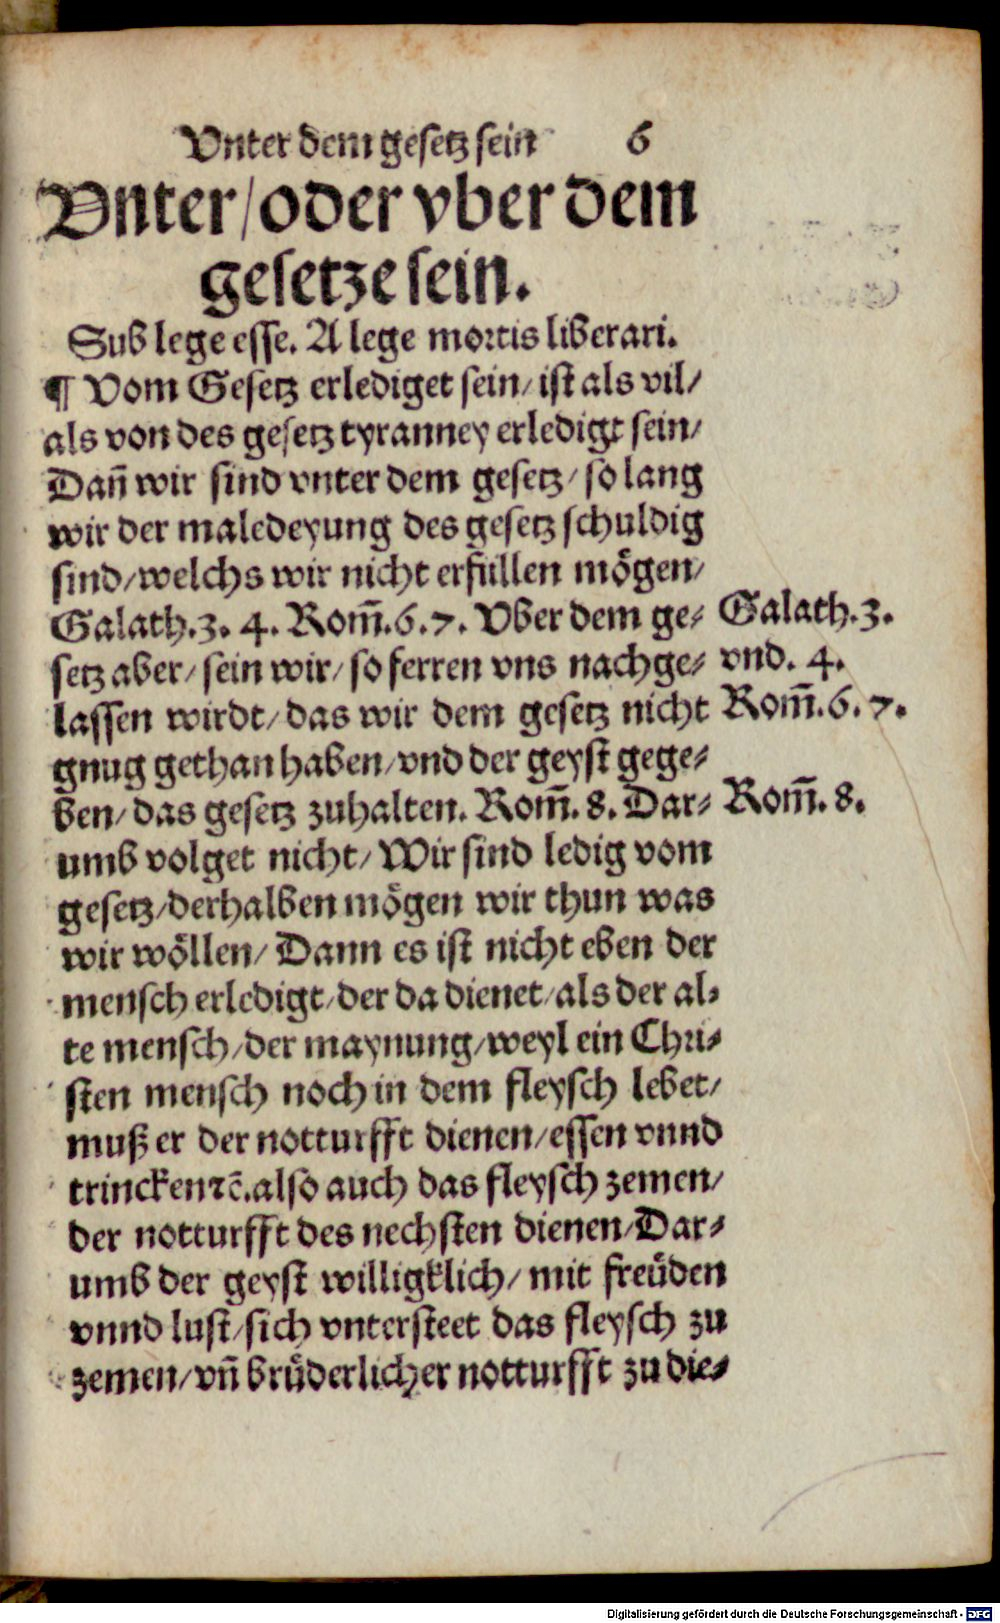 Vnter dem gesetz sein 6
Vnter/oder vber dem
gesetze sein.
Sub lege esse. A lege mortis liberari.
¶ Vom Gesetz erlediget sein/ist als vil/
als von des gesetz tyranney erledigt sein/
Dañ wir sind vnter dem gesetz/so lang
wir der maledeyung des gesetz schuldig
sind/welchs wir nicht erfüllen mögen/
Galath.3. 4. Rom̃.6.7. Vber dem ge-
setz aber/sein wir/so ferren vns nachge-
lassen wirdt/das wir dem gesetz nicht
gnug gethan haben/vnd der geyst gege-
ben/das gesetz zuhalten. Rom̃. 8. Dar-
umb volget nicht/Wir sind ledig vom
gesetz/derhalben mögen wir thun was
wir wöllen/Dann es ist nicht eben der
mensch erledigt/der da dienet/als der al-
te mensch/der maynung/weyl ein Chri-
sten mensch noch in dem fleysch lebet/
muß er der notturfft dienen/essen vnnd
trincken ꝛc̃.also auch das fleysch zemen/
der notturfft des nechsten dienen/Dar-
umb der geyst willigklich/mit freüden
vnnd lust/sich vntersteet das fleysch zu
zemen/vñ brüderlicher notturfft zu die-
Galath.3.
vnd. 4.
Rom̃.6.7.
Rom̃. 8.
Digitalisierung gefördert durch die Deutsche Forschungsgemeinschaft - DFG